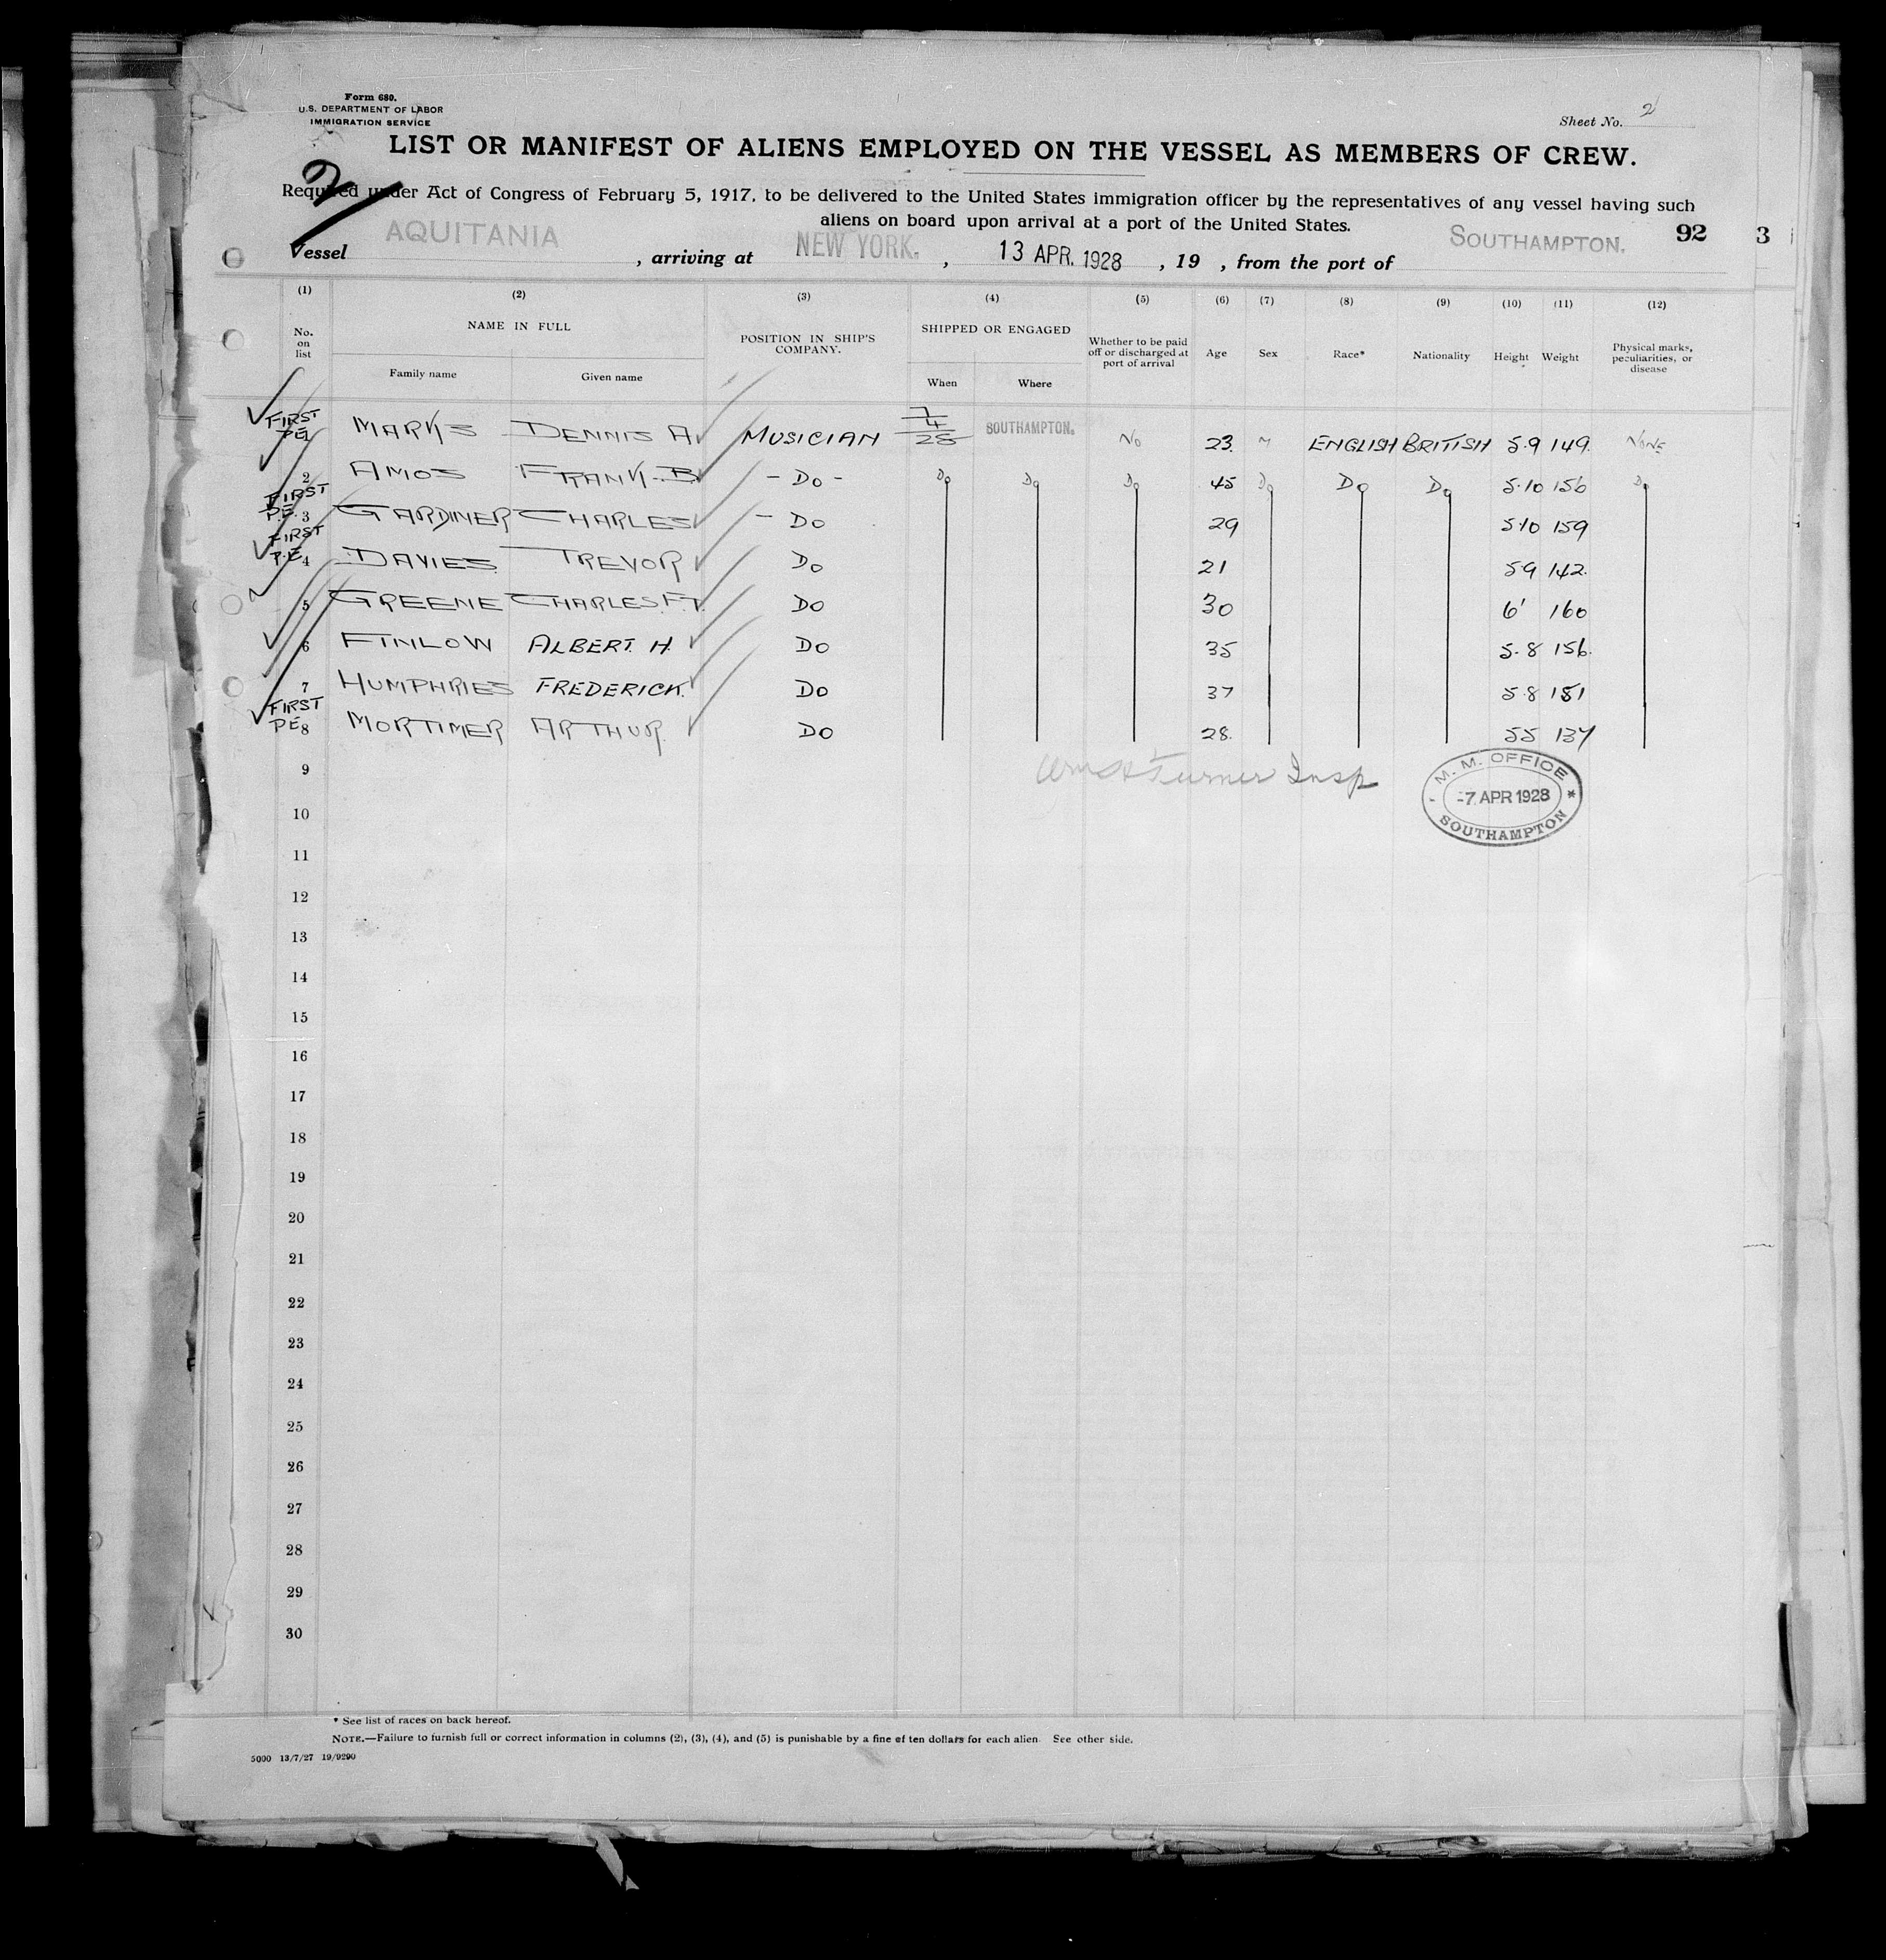 Form 680.
U.S. DEPARTMENT OF LABOR
IMMIGRATION SERVICE
Sheet No. 2
LIST OR MANIFEST OF ALIENS EMPLOYED ON THE VESSEL AS MEMBERS OF CREW.
2
Required under Act of Congress of February 5, 1917, to be delivered to the United States immigration officer by the representatives of any vessel having such
aliens on board upon arrival at a port of the United States.
92 3
Vessel AQUITANIA, arriving at NEW YORK., 13 APR. 1928, 19 , from the port of SOUTHAMPTON.
(1) (2) (3) (4) (5) (6) (7) (8) (9) (10) (11) (12)
No. on list NAME IN FULL POSITION IN SHIP'S COMPANY. SHIPPED OR ENGAGED Whether to be paid off or discharged at port of arrival Age Sex Race* Nationality Height Weight Physical marks, peculiarities, or disease
Family name Given name When Where
FIRST PE 1 MARKS DENNIS A. MUSICIAN 7/4/28 SOUTHAMPTON. No 23. M ENGLISH BRITISH 5.9 149. NONE
2 AMOS FRANK. B. - DO - Do Do Do 45 Do Do Do 5.10 156 Do
FIRST P.E. 3 GARDINER CHARLES - DO 29 5.10 159
FIRST P.E. 4 DAVIES. TREVOR DO 21 5.9 142.
5 GREENE CHARLES. F.T. DO 30 6' 160
6 FINLOW ALBERT. H. DO 35 5.8 156.
7 HUMPHRIES FREDERICK. DO 37 5.8 151
FIRST PE 8 MORTIMER ARTHUR. DO 28. 5.5 137
9 Turner Insp
M. M. OFFICE
-7 APR 1928
SOUTHAMPTON
10
11
12
13
14
15
16
17
18
19
20
21
22
23
24
25
26
27
28
29
30
* See list of races on back hereof.
NOTE.—Failure to furnish full or correct information in columns (2), (3), (4), and (5) is punishable by a fine of ten dollars for each alien. See other side.
5000 13/7/27 19/9290